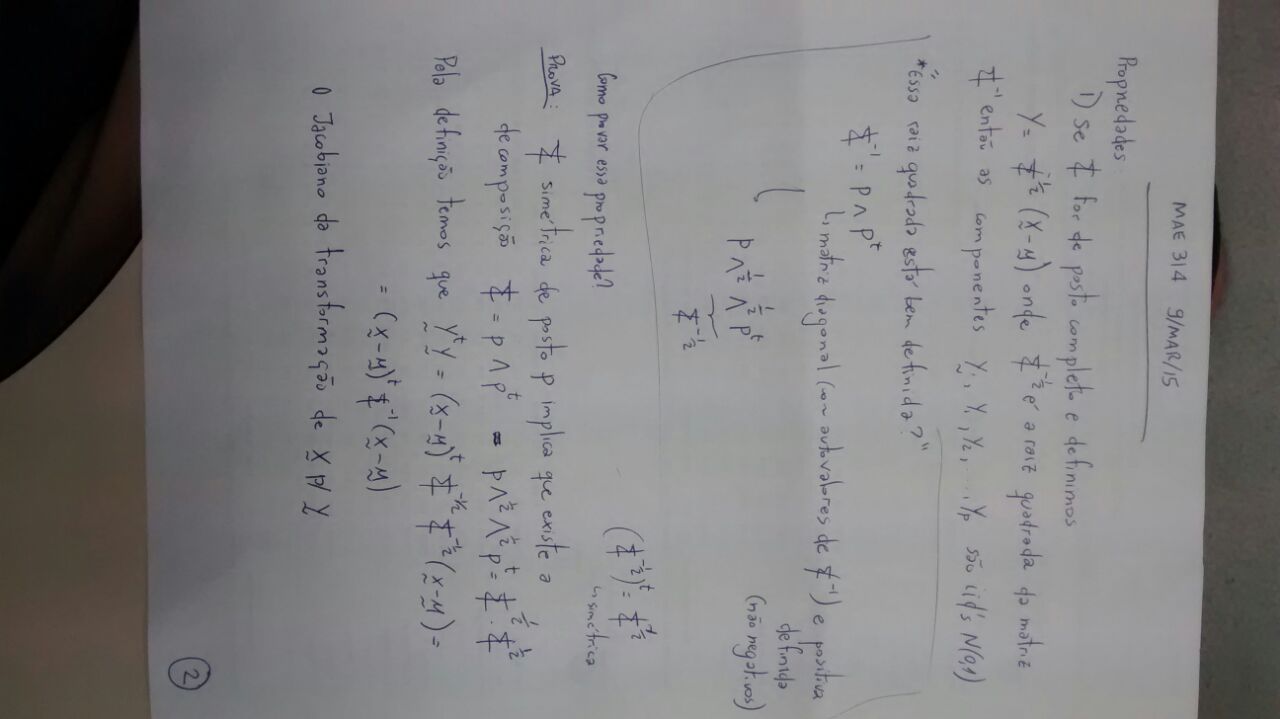 MAE 314 9/MAR/15
Propriedades:
1) Se Σ for de posto completo e definimos
Y = Σ^-½ (X-μ) onde Σ^-½ é a raiz quadrada da matriz
Σ^-1 então as componentes Y_i, Y_1, Y_2, ..., Y_p são iid's N(0,1)
*"Essa raiz quadrada está bem definida?"
Σ^-1 = P Λ P^t
↳ matriz diagonal (com autovalores de Σ^-1) e positiva
definida
(não negativos)
P Λ^½ Λ^½ P^t
Σ^-½
Como provar essa propriedade?
(Σ^-½)^t = Σ^-½
↳ simétrica
PROVA: Σ simétrica de posto p implica que existe a
decomposição Σ = P Λ P^t = P Λ^½ Λ^½ P^t = Σ^½ · Σ^½
Pela definição temos que Y^t Y = (X-μ)^t Σ^-1/2 Σ^-½ (X-μ) =
= (X-μ)^t Σ^-1 (X-μ)
O Jacobiano da transformação de X p/ Y
2